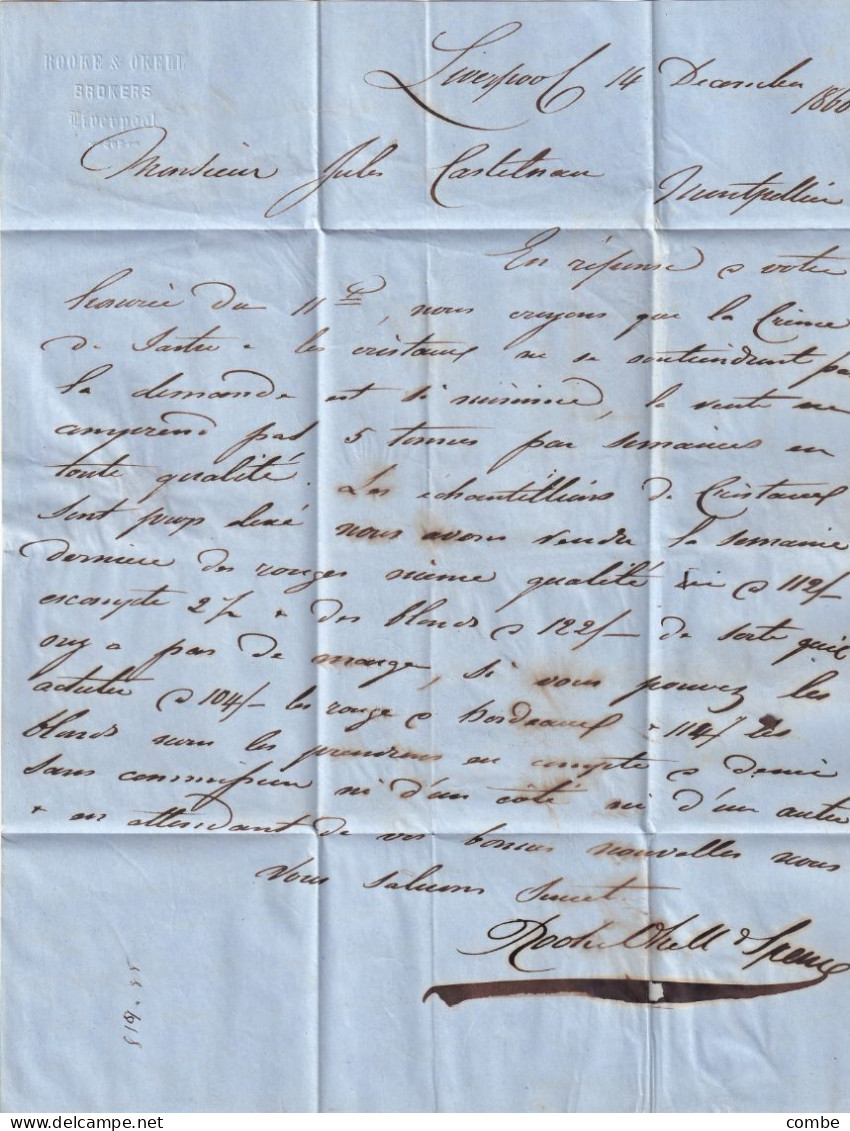 ROOKE & OKELL
BROKERS
Liverpool
Liverpool 14 December 1860
Monsieur Jules Castelnau Montpellier
En réponse a votre
honorée du 11 Ct, nous croyons que la Crême
de Tartre & les cristaux ne se soutiendront pas
la demande est si minime, la vente ne
comprend pas 5 tonnes par semaines en
toute qualité. Les échantillions de Cristaux
sont trop
nous avons vendu la semaine
derniere des rouges même qualité ici a 112/-
escompte 2 1/2 & des blancs a 122/- de sorte quil
ny a pas de marge, si vous pouvez les
acheter a 104/- les rouge a Bordeaux & 114/ les
blancs nous les prendrons en compte a demi
sans commission ni d'un côté ni d'un autre
& en attendant de vos bonnes nouvelles nous
Vous saluons
Rooke Okell & Spence
combe